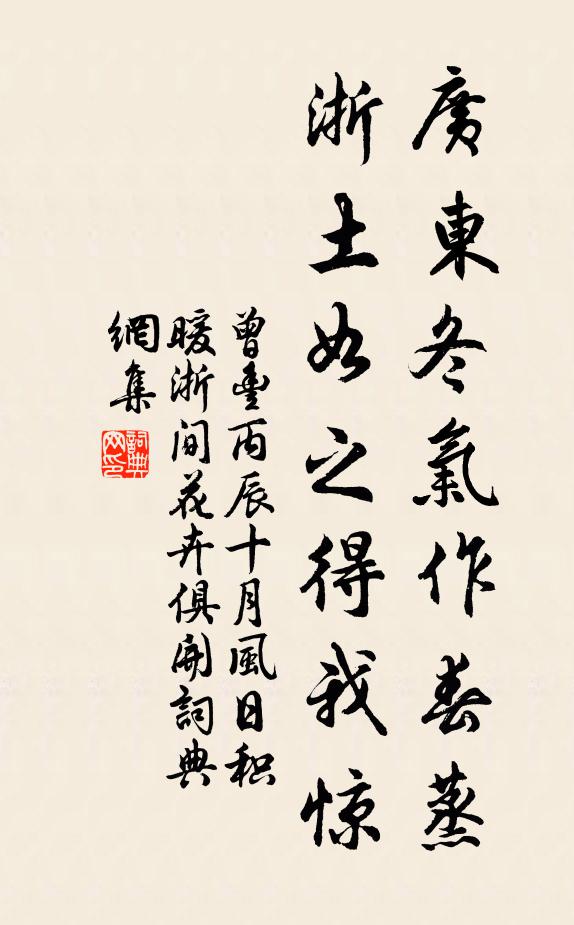 廣東冬氣作春蒸
浙土如之得我惊
曾豊丙辰十月風日积
暖浙间花卉俱開詞典
網集
詞典網印